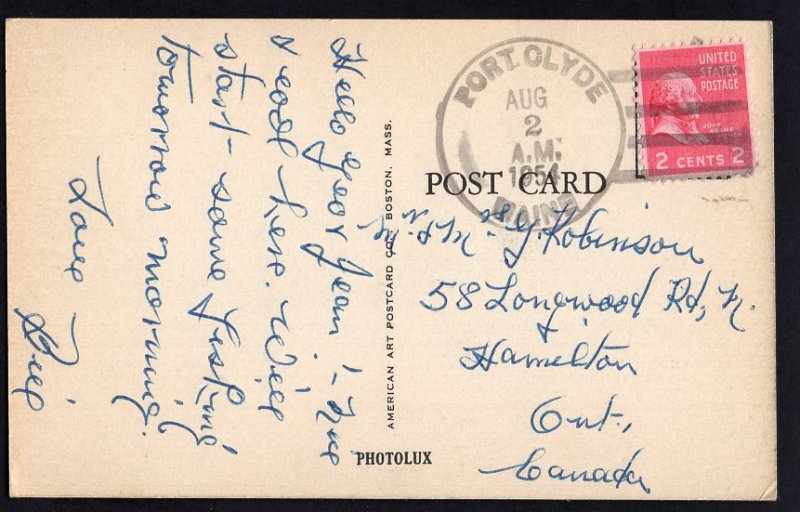 Hello Geor Jean! - Fine
read here. Will
start some fishing
tomorrow morning.
Love Bill
AMERICAN ART POSTCARD CO., BOSTON, MASS.
PHOTOLUX
PORT CLYDE
AUG
2
A.M.
1954
MAINE
UNITED
STATES
POSTAGE
JOHN ADAMS
2 CENTS 2
POST CARD
Mr. & Mrs. G. Robinson
58 Longwood Rd, N.
Hamilton
Ont.,
Canada